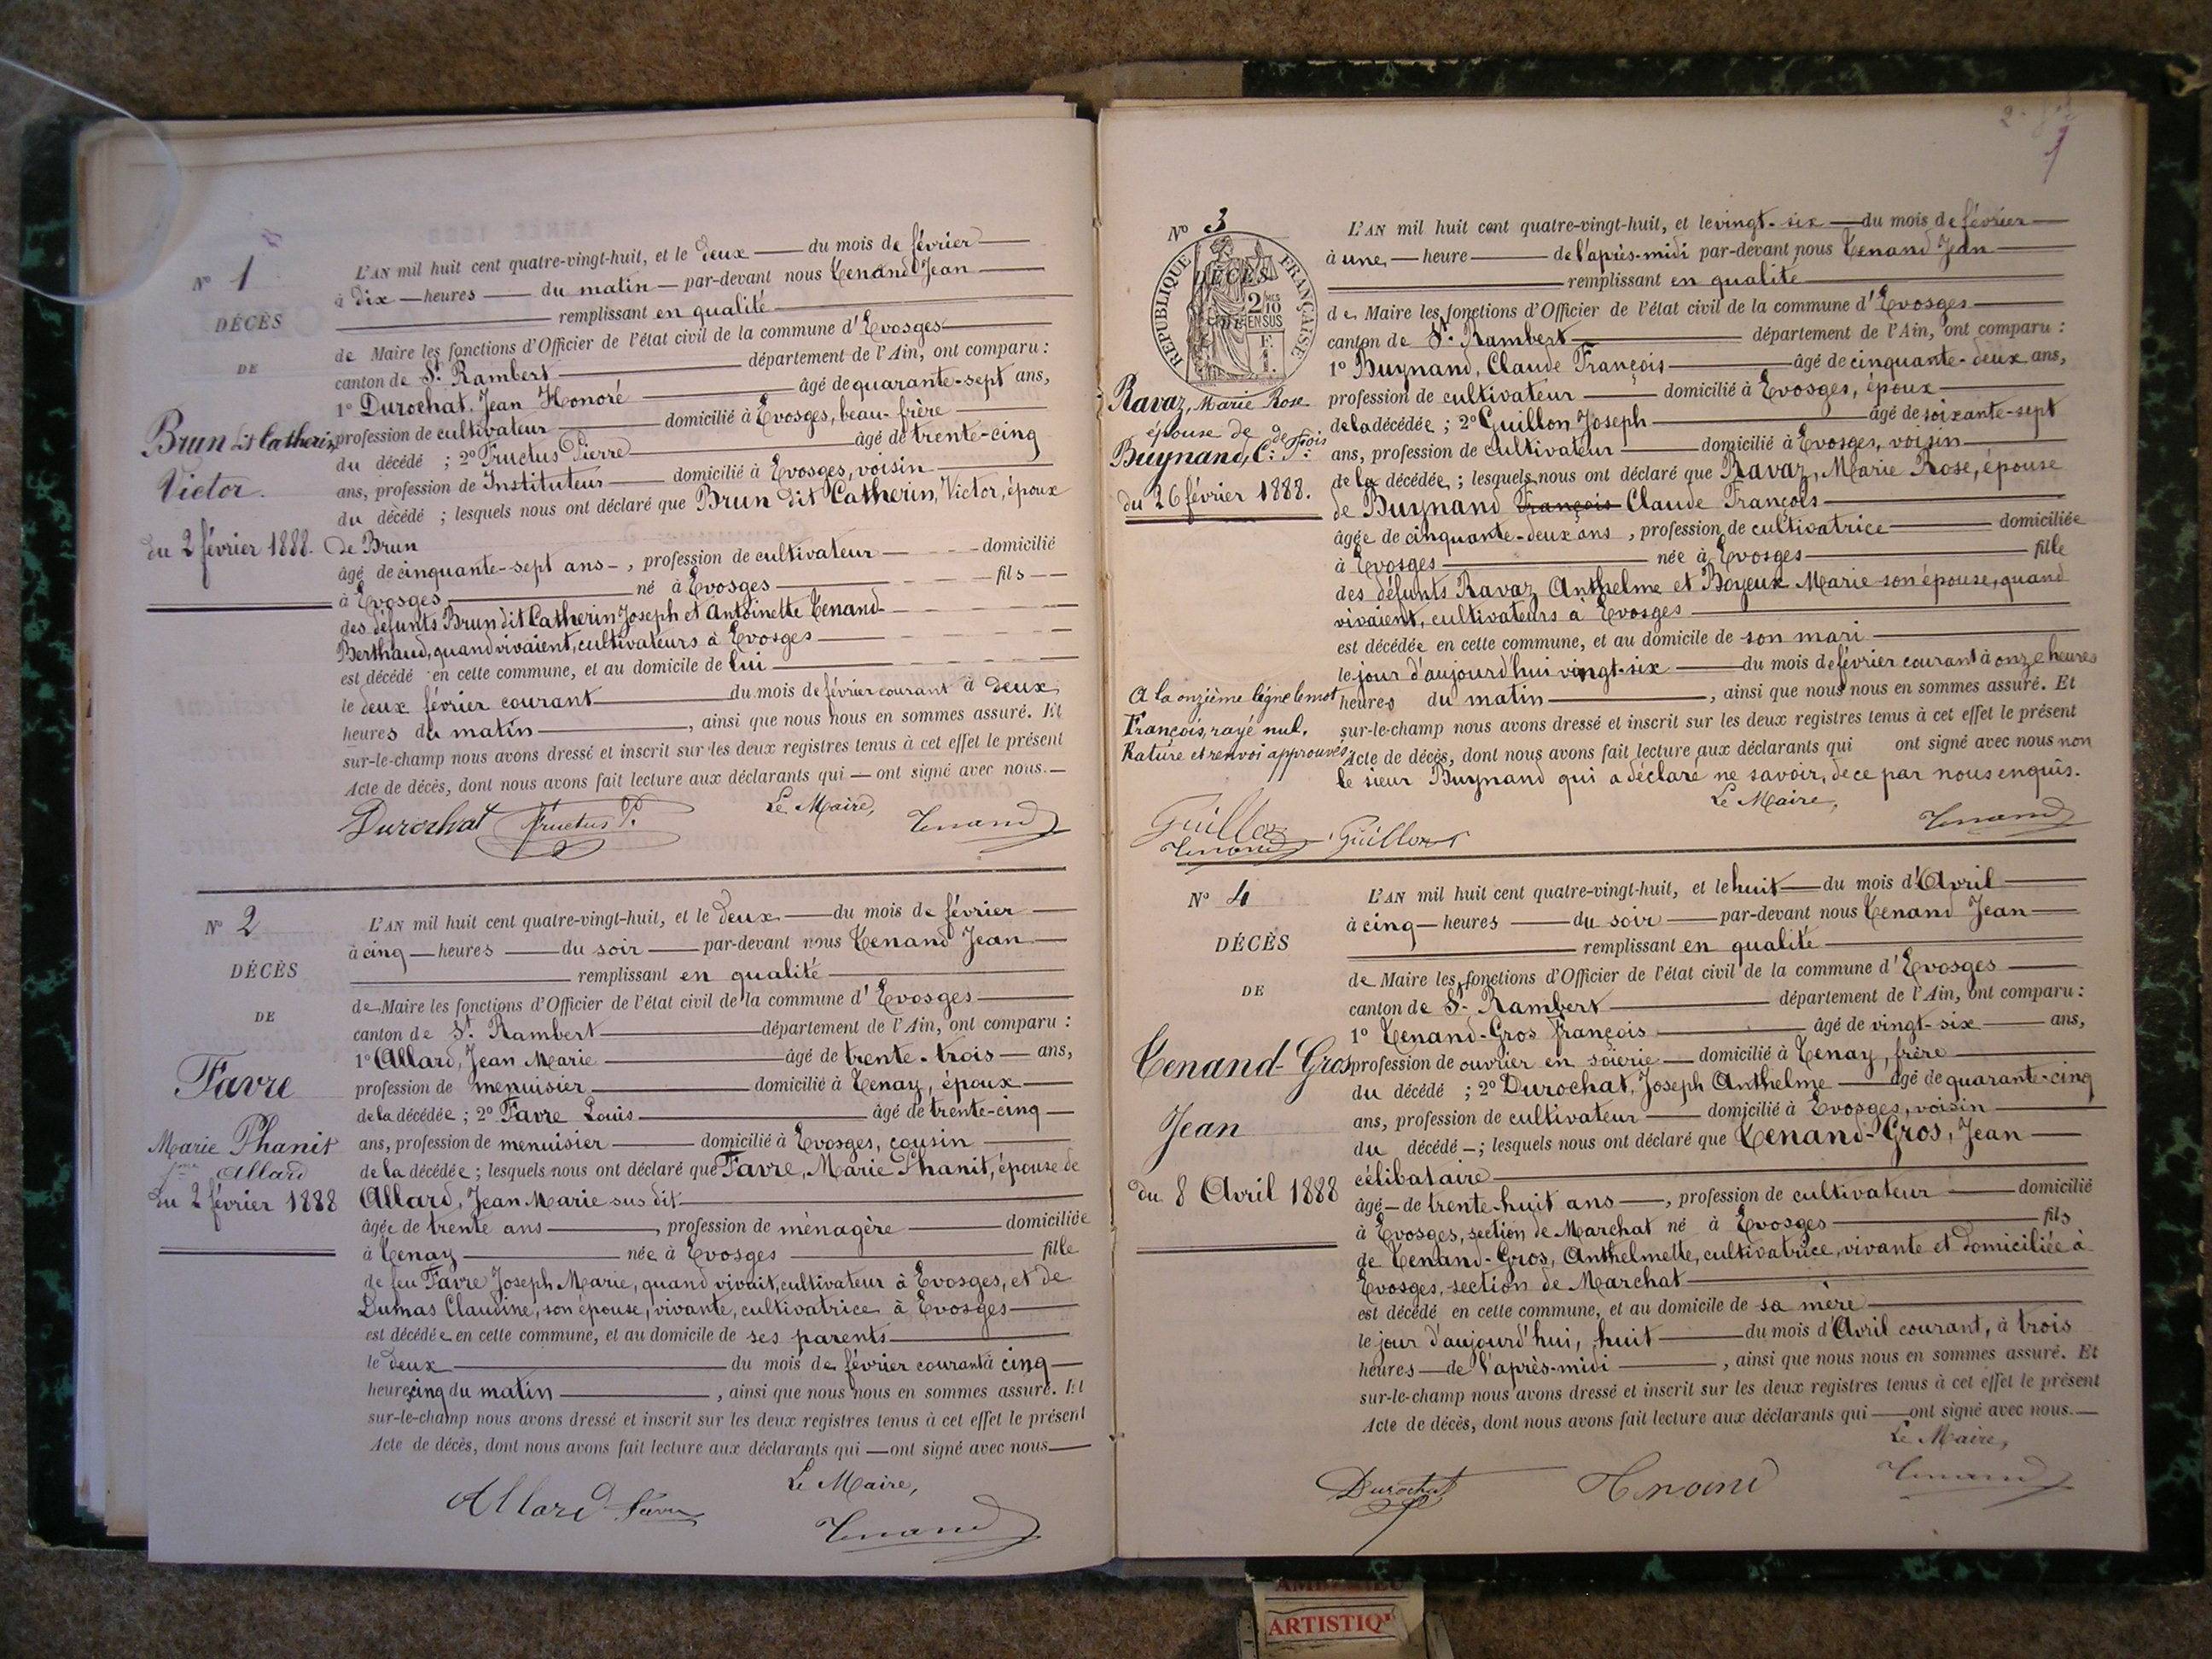 N° 1
DÉCÈS
DE
Brun dit Catherin
Victor.
du 2 février 1888.
L'AN mil huit cent quatre-vingt-huit, et le deux du mois de février
à dix heures du matin par-devant nous Tenand Jean
remplissant en qualité
de Maire les fonctions d'Officier de l'état civil de la commune d'Evosges
canton de St. Rambert département de l'Ain, ont comparu :
1° Durochat, Jean Honoré âgé de quarante-sept ans,
profession de cultivateur domicilié à Evosges, beau-frère
du décédé ; 2° Fructus Pierre âgé de trente-cinq
ans, profession de Instituteur domicilié à Evosges, voisin
du décédé ; lesquels nous ont déclaré que Brun dit Catherin, Victor, époux
de Brun
âgé de cinquante-sept ans, profession de cultivateur domicilié
à Evosges né à Evosges fils
des défunts Brun dit Catherin Joseph et Antoinette Tenand
Berthaud, quand vivaient, cultivateurs à Evosges
est décédé en cette commune, et au domicile de lui
le deux février courant du mois de février courant à deux
heures du matin, ainsi que nous nous en sommes assuré. Et
sur-le-champ nous avons dressé et inscrit sur les deux registres tenus à cet effet le présent
Acte de décès, dont nous avons fait lecture aux déclarants qui — ont signé avec nous.
Le Maire,
Durochat Fructus P. Tenand
N° 2
DÉCÈS
DE
Favre
Marie Phanit
Allard
du 2 février 1888
L'AN mil huit cent quatre-vingt-huit, et le deux du mois de février
à cinq heures du soir par-devant nous Tenand Jean
remplissant en qualité
de Maire les fonctions d'Officier de l'état civil de la commune d'Evosges
canton de St. Rambert département de l'Ain, ont comparu :
1° Allard, Jean Marie âgé de trente-trois ans,
profession de menuisier domicilié à Tenay, époux
de la décédée ; 2° Favre Louis âgé de trente-cinq
ans, profession de menuisier domicilié à Evosges, cousin
de la décédée ; lesquels nous ont déclaré que Favre, Marie Phanit, épouse de
Allard, Jean Marie sus dit
âgée de trente ans, profession de ménagère domiciliée
à Tenay née à Evosges fille
de feu Favre Joseph Marie, quand vivait, cultivateur à Evosges, et de
Dumas Claudine, son épouse, vivante, cultivatrice à Evosges
est décédée en cette commune, et au domicile de ses parents
le deux du mois de février courant à cinq
heures cinq du matin, ainsi que nous nous en sommes assuré. Et
sur-le-champ nous avons dressé et inscrit sur les deux registres tenus à cet effet le présent
Acte de décès, dont nous avons fait lecture aux déclarants qui — ont signé avec nous
Le Maire,
Allard Favre
Tenand
1
N° 3
RÉPUBLIQUE FRANÇAISE
DÉCÈS
2/10 MES
EN SUS
DE
F.
1.
Ravaz, Marie Rose
épouse de
Buynand, C. de F. ois
du 26 février 1888.
L'AN mil huit cent quatre-vingt-huit, et le vingt-six du mois de février
à une heure de l'après-midi par-devant nous Tenand Jean
remplissant en qualité
de Maire les fonctions d'Officier de l'état civil de la commune d'Evosges
canton de St. Rambert département de l'Ain, ont comparu :
1° Buynand, Claude François âgé de cinquante-deux ans,
profession de cultivateur domicilié à Evosges, époux
de la décédée ; 2° Guillon Joseph âgé de soixante-sept
ans, profession de cultivateur domicilié à Evosges, voisin
de la décédée ; lesquels nous ont déclaré que Ravaz, Marie Rose, épouse
de Buynand François Claude François
âgée de cinquante-deux ans, profession de cultivatrice domiciliée
à Evosges née à Evosges fille
des défunts Ravaz Anthelme et Boyeux Marie son épouse, quand
vivaient, cultivateurs à Evosges
est décédée en cette commune, et au domicile de son mari
le jour d'aujourd'hui vingt-six du mois de février courant à onze heures
heures du matin, ainsi que nous nous en sommes assuré. Et
sur-le-champ nous avons dressé et inscrit sur les deux registres tenus à cet effet le présent
Acte de décès, dont nous avons fait lecture aux déclarants qui ont signé avec nous non
le sieur Buynand qui a déclaré ne savoir, de ce par nous enquis.
A la onzième ligne le mot
François, rayé nul.
Rature et renvoi approuvés
Le Maire,
Guillon Guillon Tenand
Tenand
N° 4
DÉCÈS
DE
Tenand-Gros
Jean
du 8 Avril 1888
L'AN mil huit cent quatre-vingt-huit, et le huit du mois d'Avril
à cinq heures du soir par-devant nous Tenand Jean
remplissant en qualité
de Maire les fonctions d'Officier de l'état civil de la commune d'Evosges
canton de St. Rambert département de l'Ain, ont comparu :
1° Tenand-Gros François âgé de vingt-six ans,
profession de ouvrier en soierie domicilié à Tenay, frère
du décédé ; 2° Durochat, Joseph Anthelme âgé de quarante-cinq
ans, profession de cultivateur domicilié à Evosges, voisin
du décédé ; lesquels nous ont déclaré que Tenand-Gros, Jean
célibataire
âgé de trente-huit ans, profession de cultivateur domicilié
à Evosges, section de Marchat né à Evosges fils
de Tenand-Gros, Anthelmette, cultivatrice, vivante et domiciliée à
Evosges, section de Marchat
est décédé en cette commune, et au domicile de sa mère
le jour d'aujourd'hui, huit du mois d'Avril courant, à trois
heures de l'après-midi, ainsi que nous nous en sommes assuré. Et
sur-le-champ nous avons dressé et inscrit sur les deux registres tenus à cet effet le présent
Acte de décès, dont nous avons fait lecture aux déclarants qui — ont signé avec nous.
Le Maire,
Durochat Tenand Tenand
ARTISTIQ